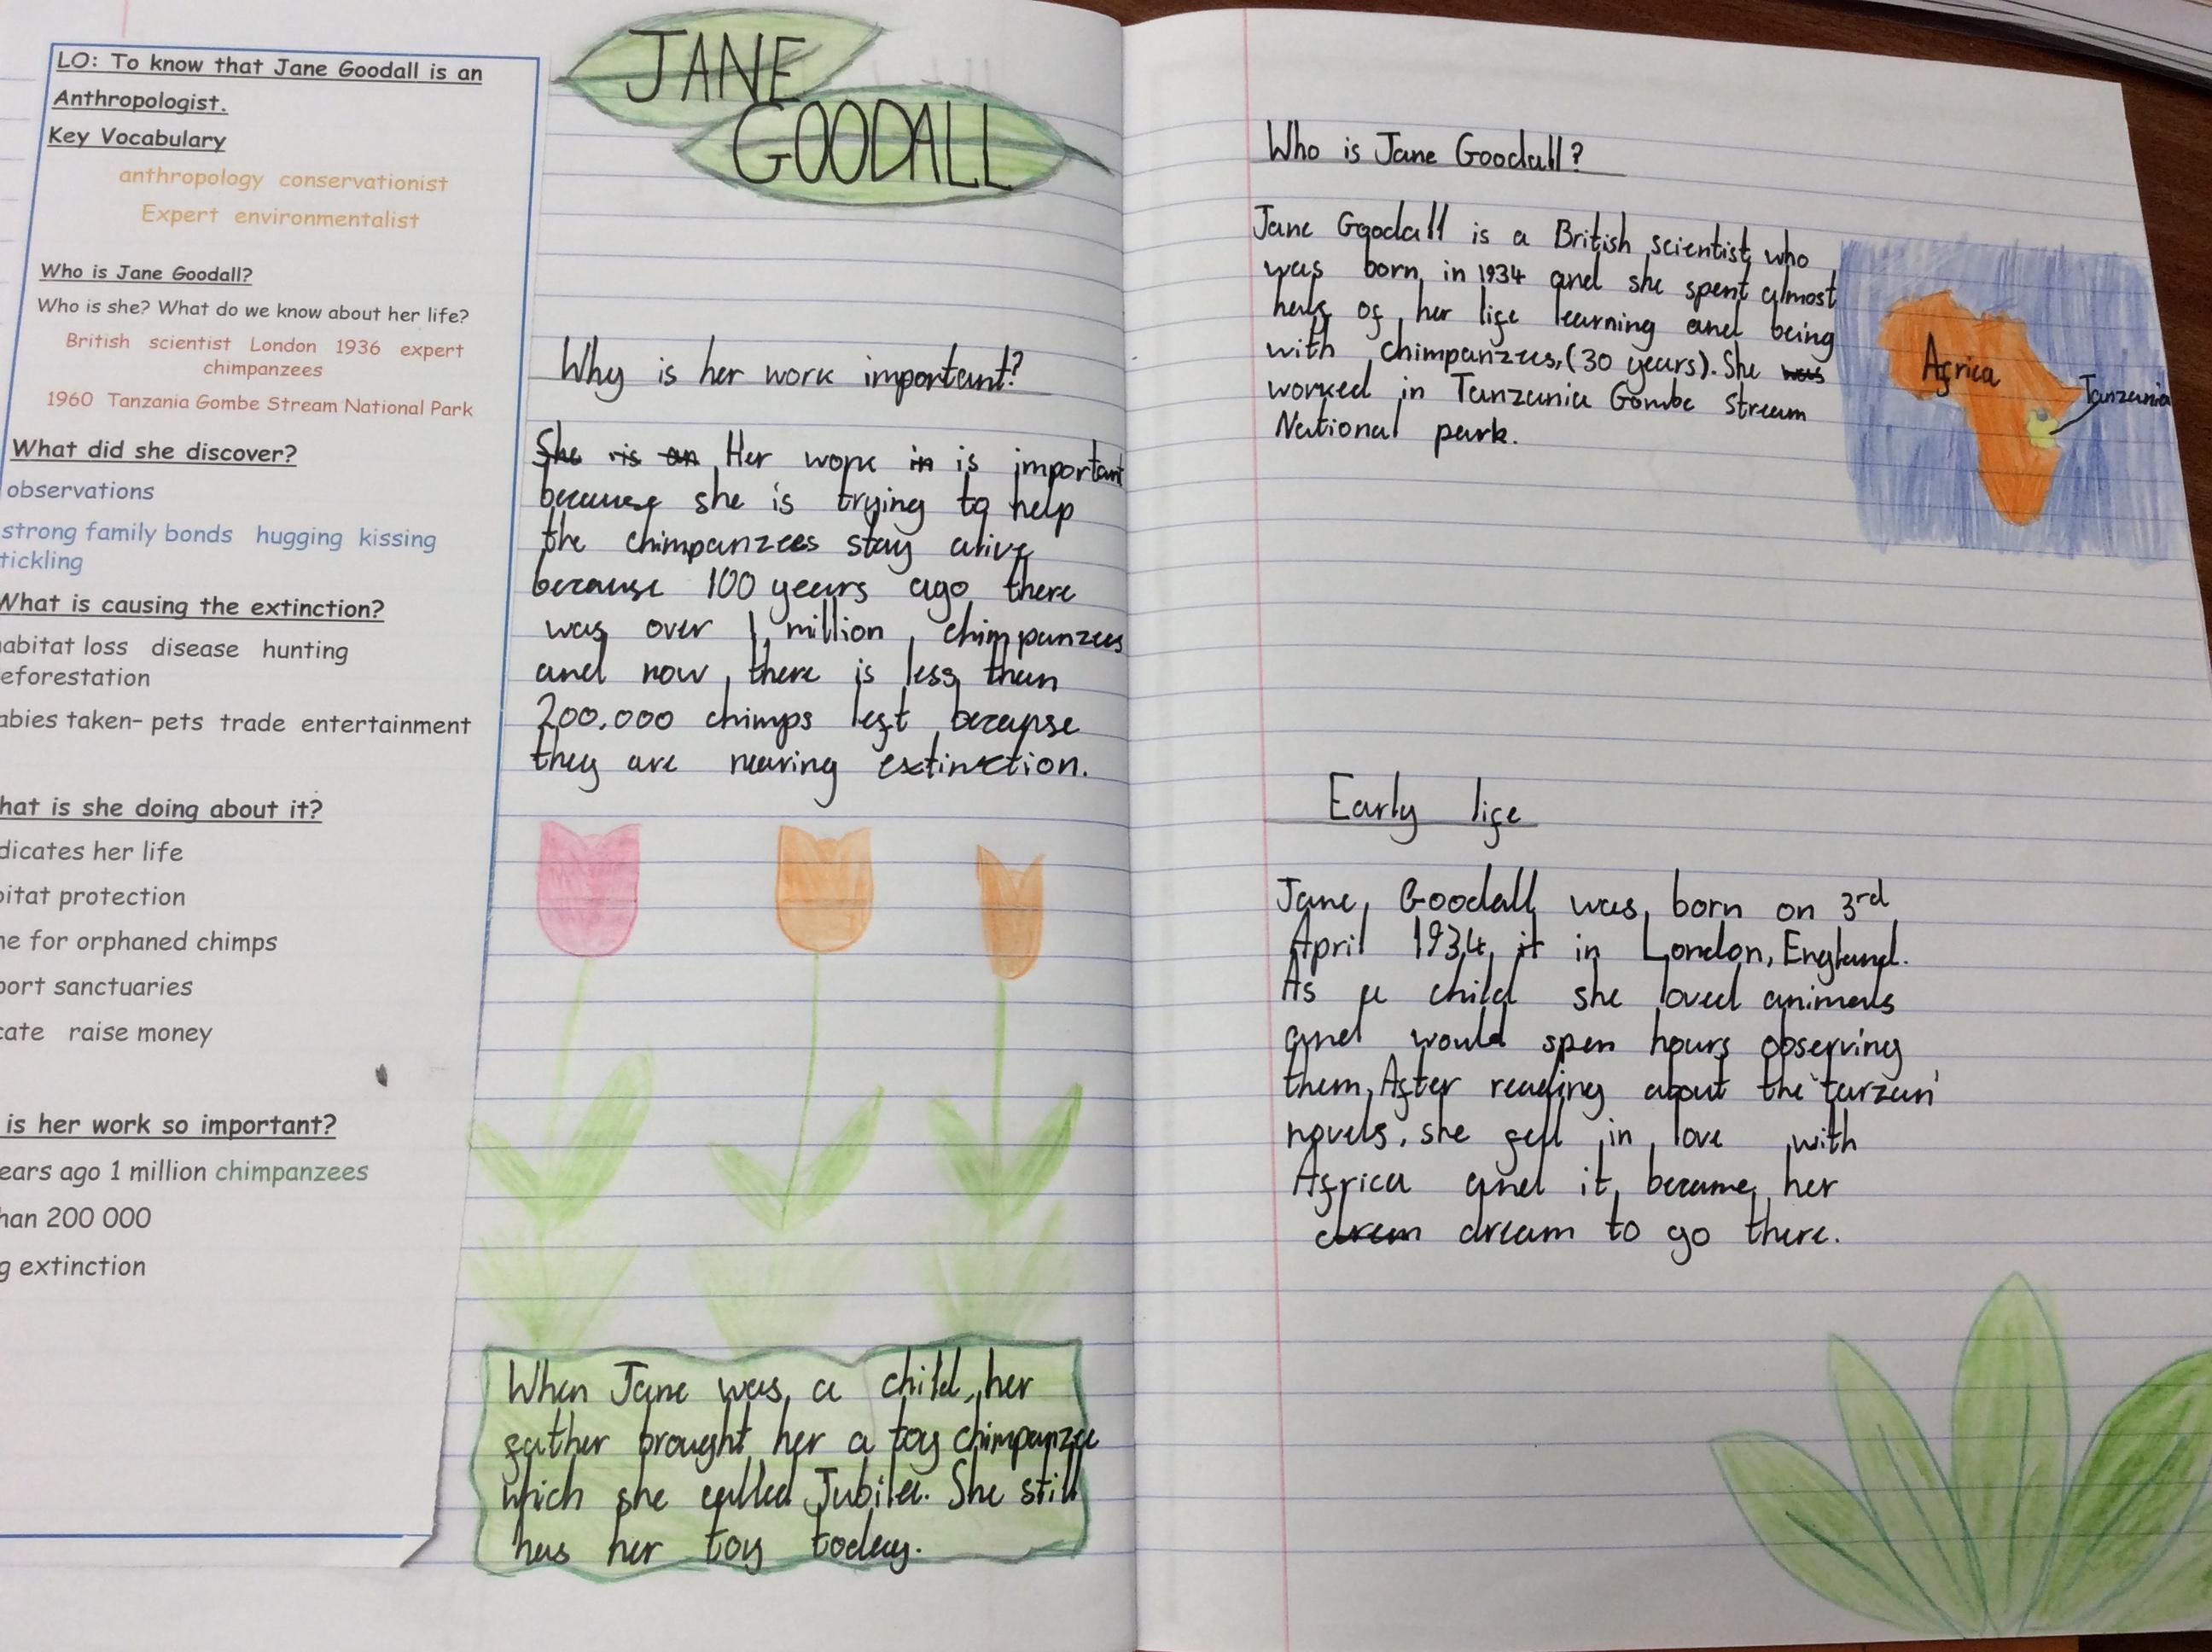 LO: To know that Jane Goodall is an
Anthropologist.
Key Vocabulary
anthropology conservationist
Expert environmentalist
Who is Jane Goodall?
Who is she? What do we know about her life?
British scientist London 1936 expert
chimpanzees
1960 Tanzania Gombe Stream National Park
What did she discover?
observations
strong family bonds hugging kissing
tickling
What is causing the extinction?
abitat loss disease hunting
eforestation
abies taken- pets trade entertainment
hat is she doing about it?
dicates her life
bitat protection
me for orphaned chimps
port sanctuaries
cate raise money
is her work so important?
ears ago 1 million chimpanzees
han 200 000
g extinction
JANE
GOODALL
Why is her work important?
She is an Her work in is important
because she is trying to help
the chimpanzees stay alive
because 100 years ago there
was over 1 million chimpanzees
and now there is less than
200.000 chimps left because
they are nearing extinction.
When Jane was a child, her
father brought her a toy chimpanzee
which she called Jubilee. She still
has her toy today.
Who is Jane Goodall?
Jane Goodall is a British scientist who
was born in 1934 and she spent almost
half of her life learning and being
with chimpanzees, (30 years). She was
worked in Tanzania Gombe Stream
National park.
Africa
Tanzania
Early life
Jane Goodall was born on 3rd
April 1934 it in London, England.
As a child she loved animals
and would spen hours observing
them. After reading about the 'tarzan'
novels, she fell in love with
Africa and it became her
drem dream to go there.